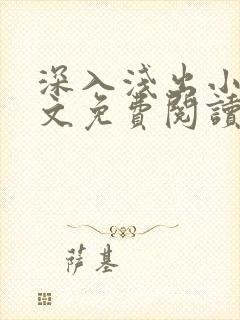 深入淺出小
文免費閱讀
萨基